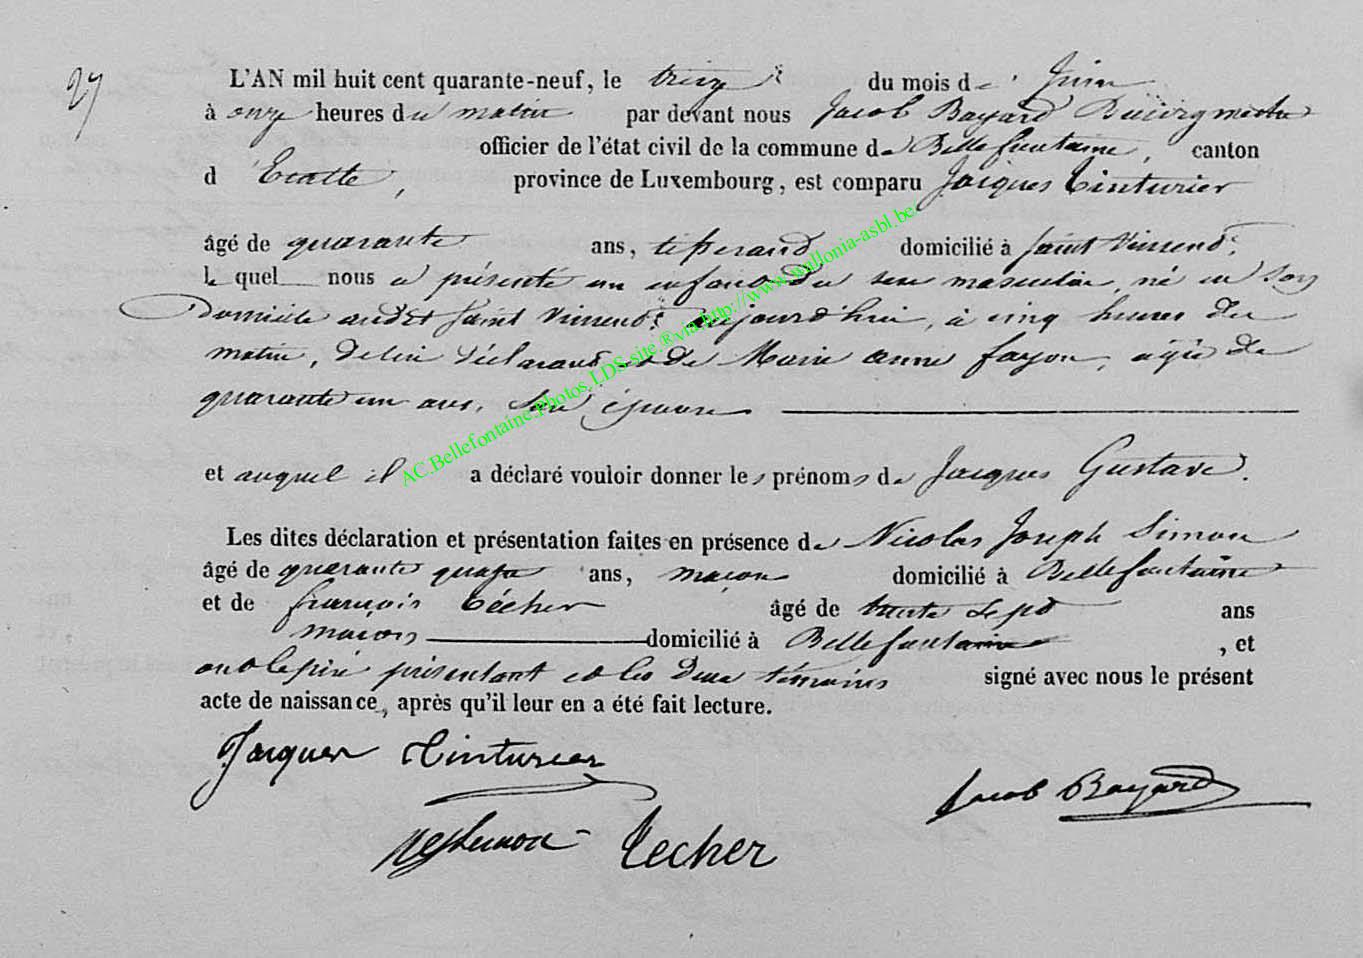 27
L'AN mil huit cent quarante-neuf, le treize du mois de Juin
à onze heures du matin par devant nous Jacob Bayard Bourgmestre
officier de l'état civil de la commune de Bellefontaine, canton
d'Etalle, province de Luxembourg, est comparu Jacques Tinturier
âgé de quarante ans, tisserand domicilié à Saint Vincent.
le quel nous a présenté un enfant du sexe masculin, né en son
Domicile audit Saint Vincent, aujourd'hui, à cinq heures du
matin, de lui déclarant et de Marie Anne fayon, agée de
quarante un ans, son épouse
et auquel il a déclaré vouloir donner les prénoms de Jacques Gustave.
Les dites déclaration et présentation faites en présence de Nicolas Joseph Simon
âgé de quarante quatre ans, maçon domicilié à Bellefontaine
et de françois Técher âgé de trente sept ans
maçon domicilié à Bellefontaine, et
ont le père présentant et les deux témoins signé avec nous le présent
acte de naissance, après qu'il leur en a été fait lecture.
Jacques Tinturier
Jacob Bayard
Techer
AC.Bellefontaine.Photos.LDS-site.®via.http://www.wallonia-asbl.be/